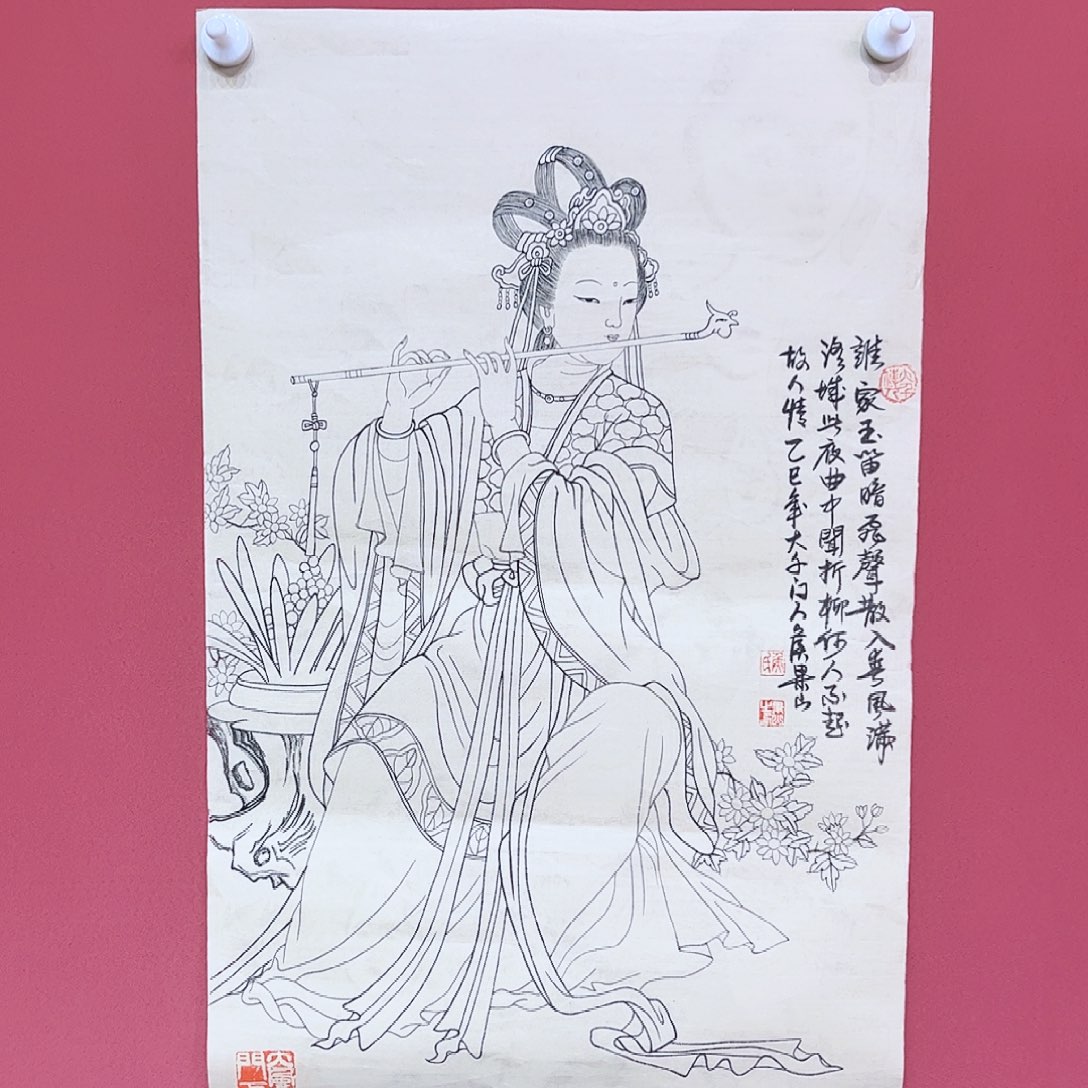 誰家玉笛暗飛聲散入春風滿
洛城此夜曲中聞折柳何人不起
故人情乙巳年大千门人侯果山
侯氏